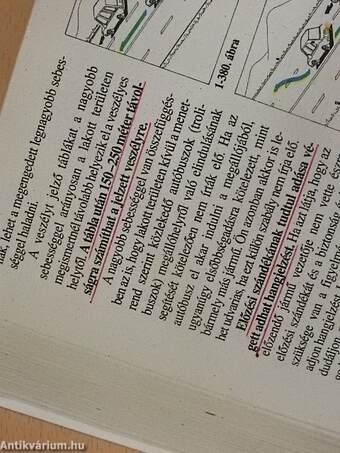 1-380. ábra
nak, lehet a megengedett legnagyobb sebes-
séggel haladni.
A veszélyt jelző táblákat a nagyobb
sebességgel arányosan a lakott területen
megismertnél távolabb helyezik el a veszélyes
helytől. A tábla után 150–250 méter távol-
ságra számíthat a jelzett veszélyre.
A nagyobb sebességgel van összefüggés-
ben az is, hogy lakott területen kívül a menet-
rend szerint közlekedő autóbuszok (troli-
buszok) megállóhelyről való elindulásának
segítését kötelezően nem írták elő. Ha az
autóbusz el akar indulni a megállójából,
ugyanúgy elsőbbségadásra kötelezett, mint
bármely más jármű. Ön azonban akkor is le-
het udvarias, ha ezt külön szabály nem írja elő.
Előzési szándékának tudtul adása vé-
gett adhat hangjelzést. Ha ezt látja, hogy az
előzendő jármű vezetője nem vette észre
előzési szándékát és a biztonság
szüksége van a figyelme
adjon hangjelzést
dudáljon
Antikvárium.hu